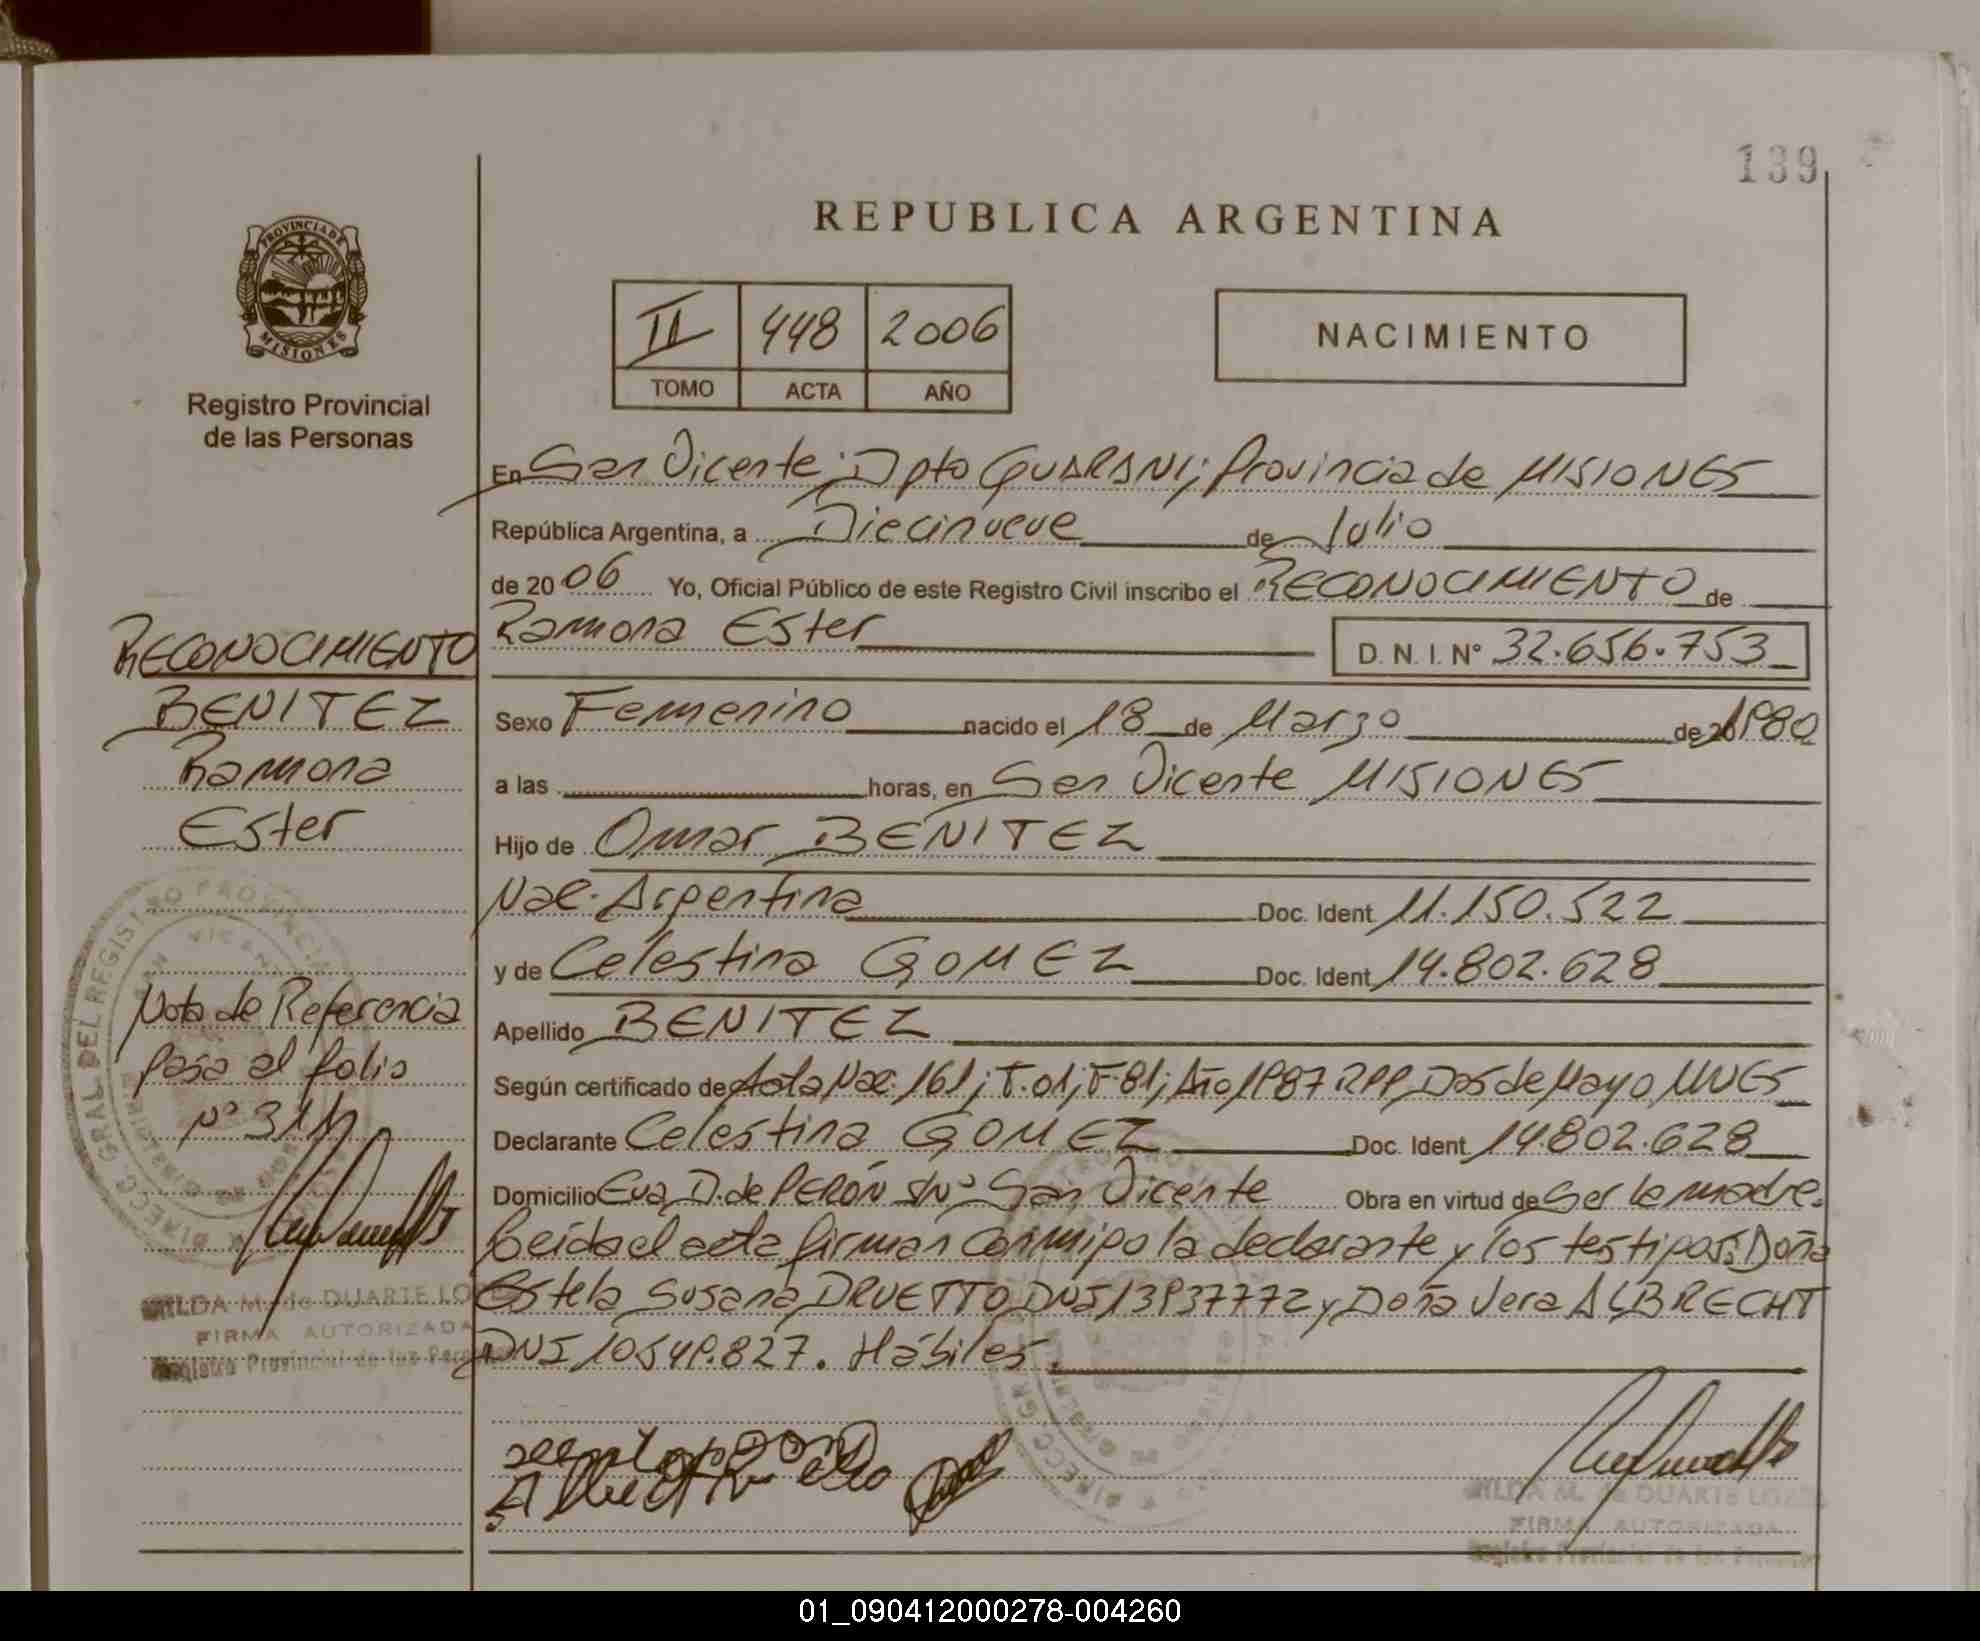 139
REPUBLICA ARGENTINA
PROVINCIA DE
MISIONES
II 448 2006
TOMO ACTA AÑO
NACIMIENTO
Registro Provincial
de las Personas
En San Vicente; Dpto GUARANI; Provincia de MISIONES
República Argentina, a Diecinueve de Julio
de 2006 Yo, Oficial Público de este Registro Civil inscribo el RECONOCIMIENTO de
Ramona Ester D.N.I. Nº 32.656.753
RECONOCIMIENTO
BENITEZ
Ramona
Ester
Sexo Femenino nacido el 18 de Marzo de 20 1980
a las horas, en San Vicente MISIONES
Hijo de Omar BENITEZ
Nac. Argentina Doc. Ident 11.150.522
y de Celestina GOMEZ Doc. Ident 14.802.628
Apellido BENITEZ
Según certificado de Acta Nac. 161; T. 01; F. 81; Año 1987 RPP Dos de Mayo, MNES
Declarante Celestina GOMEZ Doc. Ident 14.802.628
Domicilio Eva D. de PERON S/Nº San Vicente Obra en virtud de Ser la madre.
Leída el acta firman conmigo la declarante y los testigos: Doña
Estela Susana DRUETTO DNI 13937772 y Doña Vera ALBRECHT
DNI 10549.827. Hábiles.
Nota de Referencia
Pasa al folio
Nº 311
HILDA M. de DUARTE
FIRMA AUTORIZADA
Registro Provincial de las Personas
HILDA M. de DUARTE
FIRMA AUTORIZADA
Registro Provincial de las Personas
01_090412000278-004260